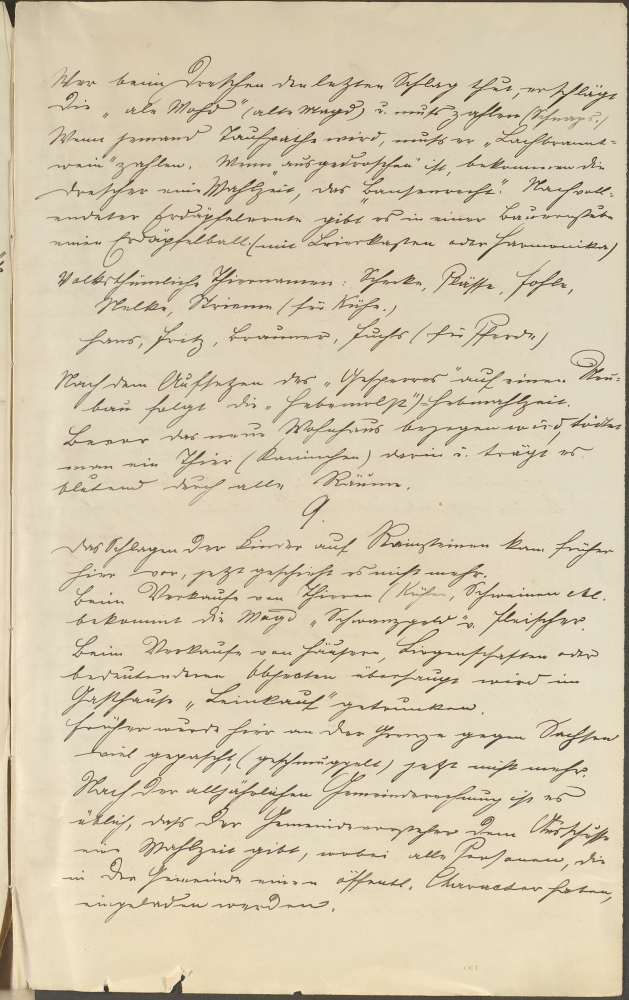 Wer beim Dreschen den letzten Schlag thut, erschlägt
die „ale Mohd" (alte Magd) u. muß zahlen (Schnaps.)
Wenn jemand Taufpathe wird, muß er „Lachbrannt-
wein" zahlen. Wenn „ausgedroschen" ist, bekommen die
Drescher eine Mahlzeit, das „Bansenrecht". Nach voll-
endeter Erdäpfelernte gibt es in einer Bauernstube
einen Erdäpfelball. (mit Leierkasten oder Harmonika)
Volksthümliche Thiernamen: Schecke, Blässe, Fohle,
Nelke, Strieme (für Kühe.)
Hans, Fritz, Brauner, Fuchs (für Pferde)
Nach dem Aufsetzen des „Gesperres" auf einen Neu-
bau folgt die = Hebemahlzeit.
Bevor das neue Wohnhaus bezogen wird, tödtet
man ein Thier (Kaninchen) darin u. trägt es
blutend durch alle Räume.
9.
Das Schlagen der Kinder auf Rainsteinen kam früher
hier vor, jetzt geschieht es nicht mehr.
Beim Verkaufe von Thieren (Kühen, Schweinen etc.
bekommt die Magd „Schwanzgeld" v. Fleischer.
Beim Verkaufe von Häusern, Liegenschaften oder
bedeutenderen Objecten überhaupt wird im
Gasthause „Leinkauf" getrunken.
Früher wurde hier an der Grenze gegen Sachsen
viel gepascht, (geschmuggelt) jetzt nicht mehr.
Nach der alljährlichen Gemeinderechnung ist es
üblich, daß der Gemeindevorsteher dem Ausschusse
eine Mahlzeit gibt, wobei alle Personen, die
in der Gemeinde einen öffentl. Character haben,
eingeladen werden.